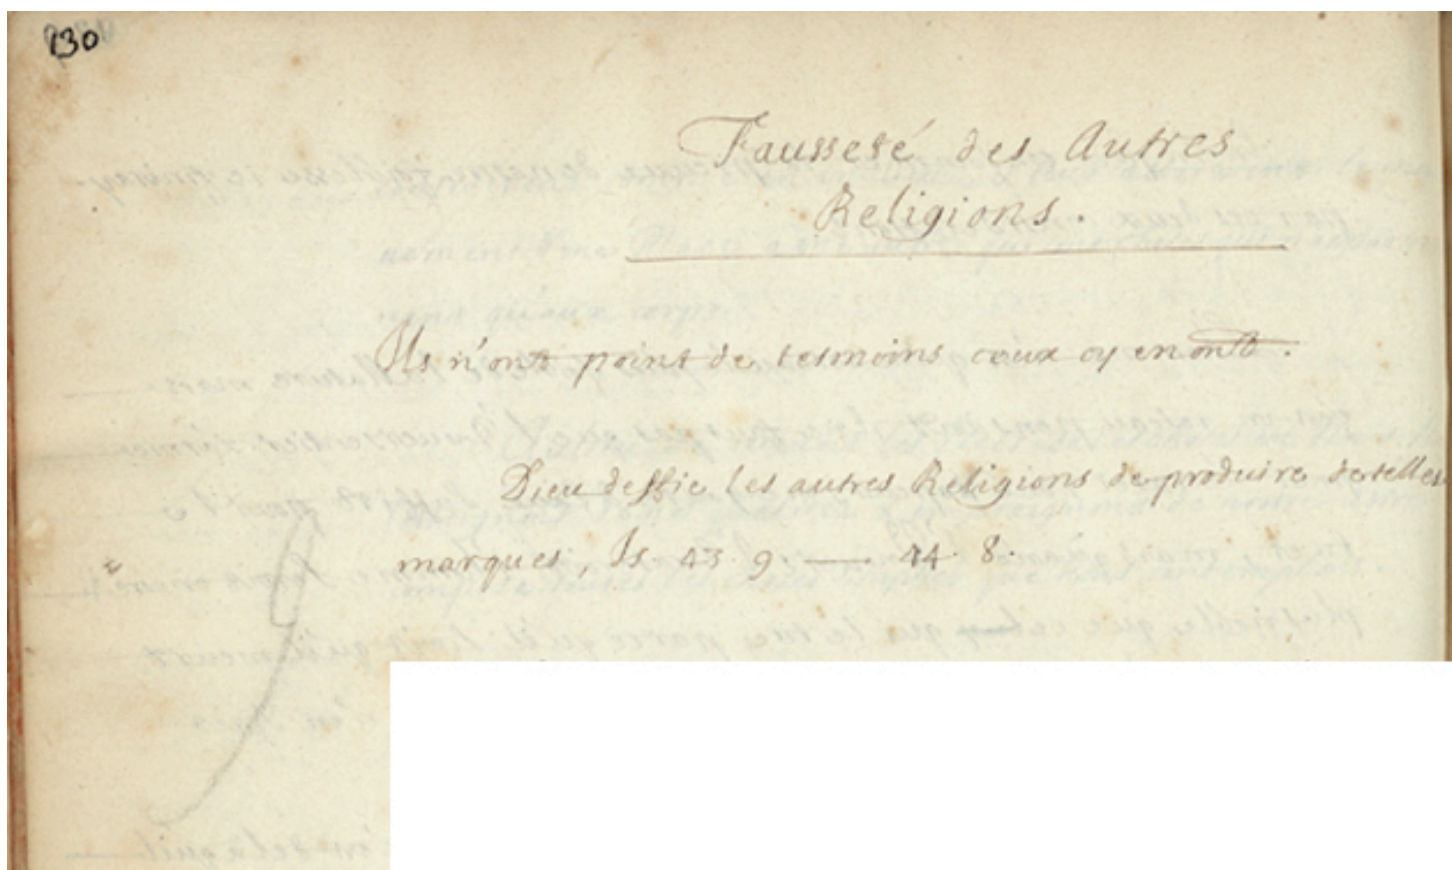 130
Fausseté des Autres
Religions.
Ils n'ont point de tesmoins ceux cy en ont.
Dieu deffie les autres Religions de produire de telles
marques, Is 43. 9. — 44. 8.